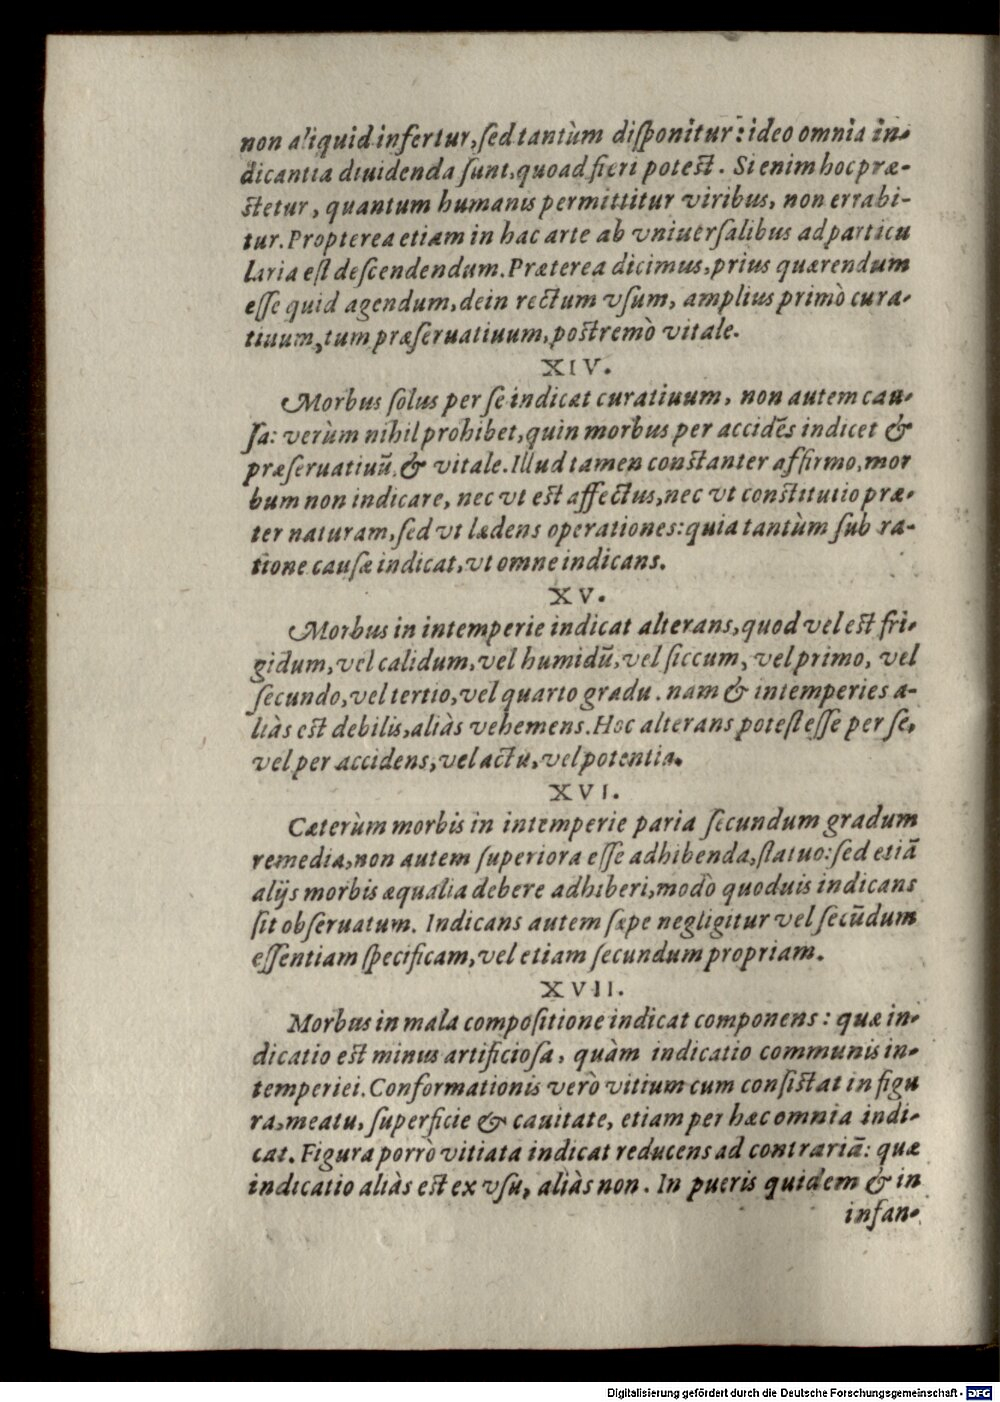 non aliquid infertur, ſed tantùm diſponitur: ideo omnia in-
dicantia diuidenda ſunt, quoad fieri poteſt. Si enim hoc præ-
ſtetur, quantum humanis permittitur viribus, non errabi-
tur. Propterea etiam in hac arte ab vniuerſalibus ad particu
laria eſt deſcendendum. Præterea dicimus, prius quærendum
eſſe quid agendum, dein rectum vſum, amplius primò cura-
tiuum, tum præſeruatiuum, poſtremò vitale.
XIV.
Morbus ſolus per ſe indicat curatiuum, non autem cau-
ſa: verùm nihil prohibet, quin morbus per accidẽs indicet &
præſeruatiuũ, & vitale. Illud tamen conſtanter affirmo, mor
bum non indicare, nec vt eſt affectus, nec vt conſtitutio præ-
ter naturam, ſed vt lædens operationes: quia tantùm ſub ra-
tione cauſæ indicat, vt omne indicans.
XV.
Morbus in intemperie indicat alterans, quod vel eſt fri-
gidum, vel calidum, vel humidũ, vel ſiccum, vel primo, vel
ſecundo, vel tertio, vel quarto gradu. nam & intemperies a-
liàs eſt debilis, aliàs vehemens. Hoc alterans poteſt eſſe per ſe,
vel per accidens, vel actu, vel potentia.
XVI.
Cæterùm morbis in intemperie paria ſecundum gradum
remedia, non autem ſuperiora eſſe adhibenda, ſtatuo: ſed etiã
alijs morbis æqualia debere adhiberi, modò quoduis indicans
ſit obſeruatum. Indicans autem ſæpe negligitur vel ſecũdum
eſſentiam ſpecificam, vel etiam ſecundum propriam.
XVII.
Morbus in mala compoſitione indicat componens: quæ in-
dicatio eſt minus artificioſa, quàm indicatio communis in-
temperiei. Conformationis verò vitium cum conſiſtat in figu
ra, meatu, ſuperficie & cauitate, etiam per hæc omnia indi-
cat. Figura porrò vitiata indicat reducens ad contrariã: quæ
indicatio aliàs eſt ex vſu, aliàs non. In pueris quidem & in
infan-
Digitalisierung gefördert durch die Deutsche Forschungsgemeinschaft - DFG